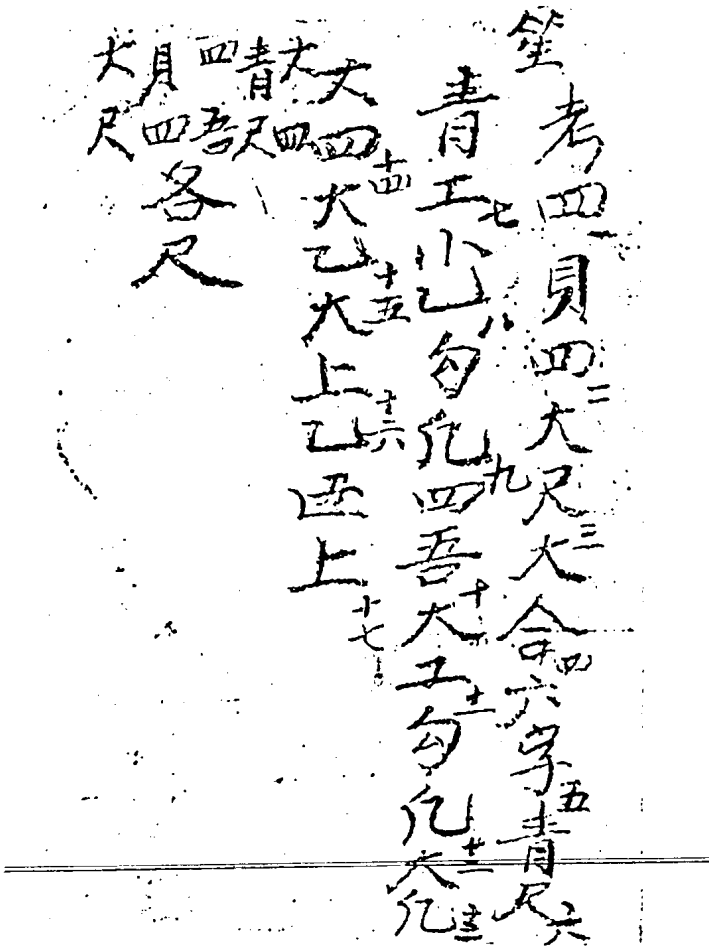 笙
考四一貝四二大尺三大合四六字五青尺六
青工七小乙八勾凢九四吾十大工十一勾凢十二大凢十三
大四十四大乙十五大上乙十六五上十七
大四
青尺
四吾
貝四各尺
大尺